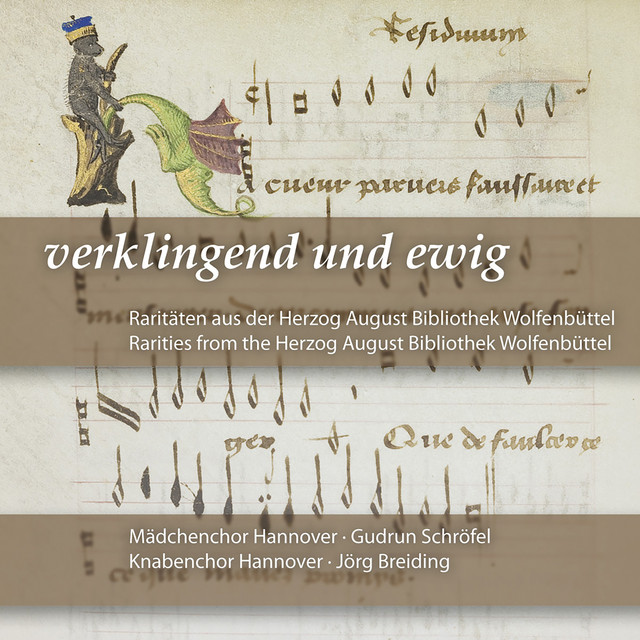 Residuum
a cueur parvers faulssaire et
verklingend und ewig
Raritäten aus der Herzog August Bibliothek Wolfenbüttel
Rarities from the Herzog August Bibliothek Wolfenbüttel
ger Que de faulce
Mädchenchor Hannover · Gudrun Schröfel
Knabenchor Hannover · Jörg Breiding